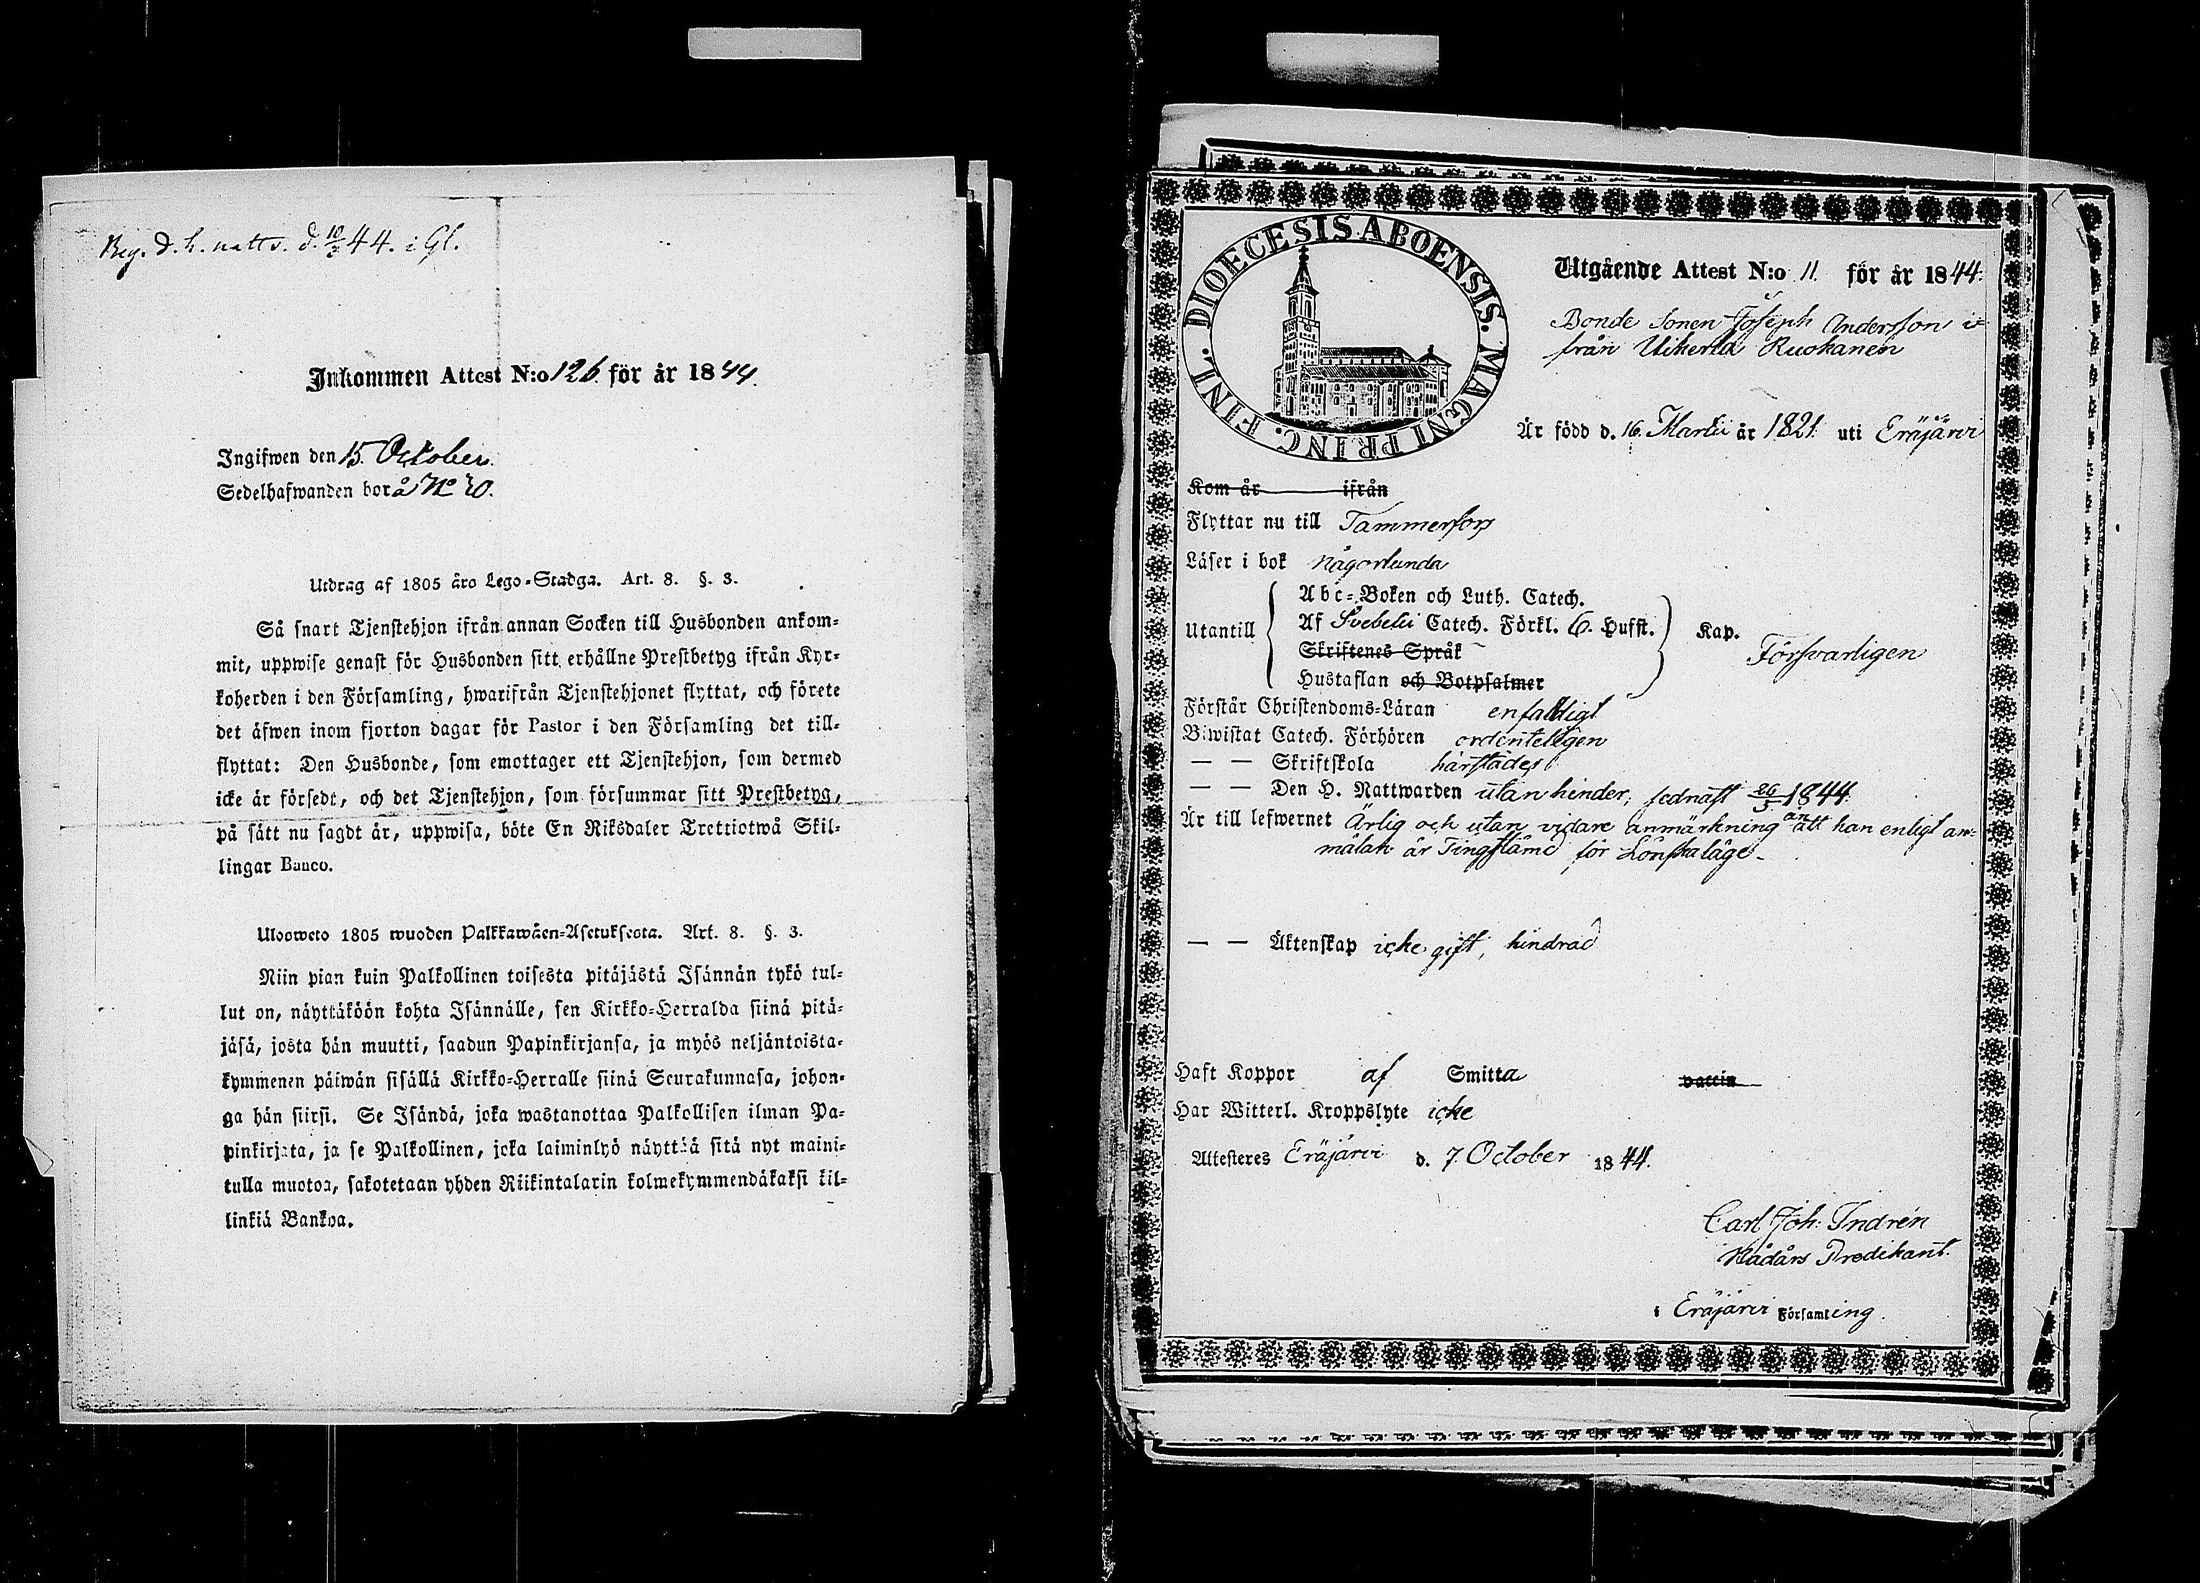 Beg. d. h. nattv. d. 10/3 44. i Gl.
Inkommen Attest N:o 126 för år 1844.
Ingifwen den 15. October.
Sedelhafwanden bor å No 20.
Utdrag af 1805 års Lego-Stadga. Art. 8. §. 3.
Så snart Tjenstehjon ifrån annan Socken till Husbonden ankom-
mit, uppwise genast för Husbonden sitt erhållne Prestbetyg ifrån Kyr-
koherden i den Församling, hwarifrån Tjenstehjonet flyttat, och förete
det äfwen inom fjorton dagar för Pastor i den Församling det till-
flyttat: Den Husbonde, som emottager ett Tjenstehjon, som dermed
icke är försedt, och det Tjenstehjon, som försummar sitt Prestbetyg,
på sätt nu sagdt är, uppwisa, böte En Riksdaler Trettiotwå Skil-
lingar Banco.
Uloosweto 1805 wuoden Palkkawäen-Asetuksesta. Art. 8. §. 3.
Niin pian kuin Palkollinen toisesta pitäjästä Isännän tykö tul-
lut on, näyttäköön kohta Isännälle, sen Kirkko-Herralda siinä pitä-
jäsä, josta hän muutti, saadun Papinkirjansa, ja myös neljäntoista-
kymmenen päiwän sisällä Kirkko-Herralle siinä Seurakunnasa, johon-
ga hän siirsi. Se Isändä, joka wastanottaa Palkollisen ilman Pa-
pinkirjata, ja se Palkollinen, joka laiminlyö näyttää sitä nyt maini-
tulla muotoa, sakotetaan yhden Riikintalarin kolmekymmendäkaksi kil-
linkiä Bankoa.
DIOECESIS ABOENSIS. MAGNI PRINC. FINL.
Utgående Attest N:o 11. för år 1844.
Bonde Sonen Joseph Andersson i-
från Uiherla Ruokanen
Är född d. 16. Martii år 1821. uti Eräjärvi
Kom år ifrån
Flyttar nu till Tammerfors
Läser i bok någorlunda
Utantill
Abc-Boken och Luth. Catech.
Af Svebelii Catech. Förkl. 6. Hufst. Kap.
Skriftenes Språk
Försvarligen
Hustaflan och Botpsalmer
Förstår Christendoms-Läran enfaldigt
Biwistat Catech. Förhören ordenteligen
— — Skriftskola härstädes
— — Den H. Nattwarden utan hinder, sednast 26/5 1844.
Är till lefwernet Ärlig och utan vidare anmärkning än att han enligt an-
mälan är Tingstämd för Lönskaläge.
— — Äktenskap icke gift, hindrad
Haft Koppor af Smitta vaccin
Har Witterl. Kroppslyte icke
Attesteres Eräjärvi d. 7. October 1844.
Carl Joh. Indrén
Nådårs Predikant.
i Eräjärvi Församling.